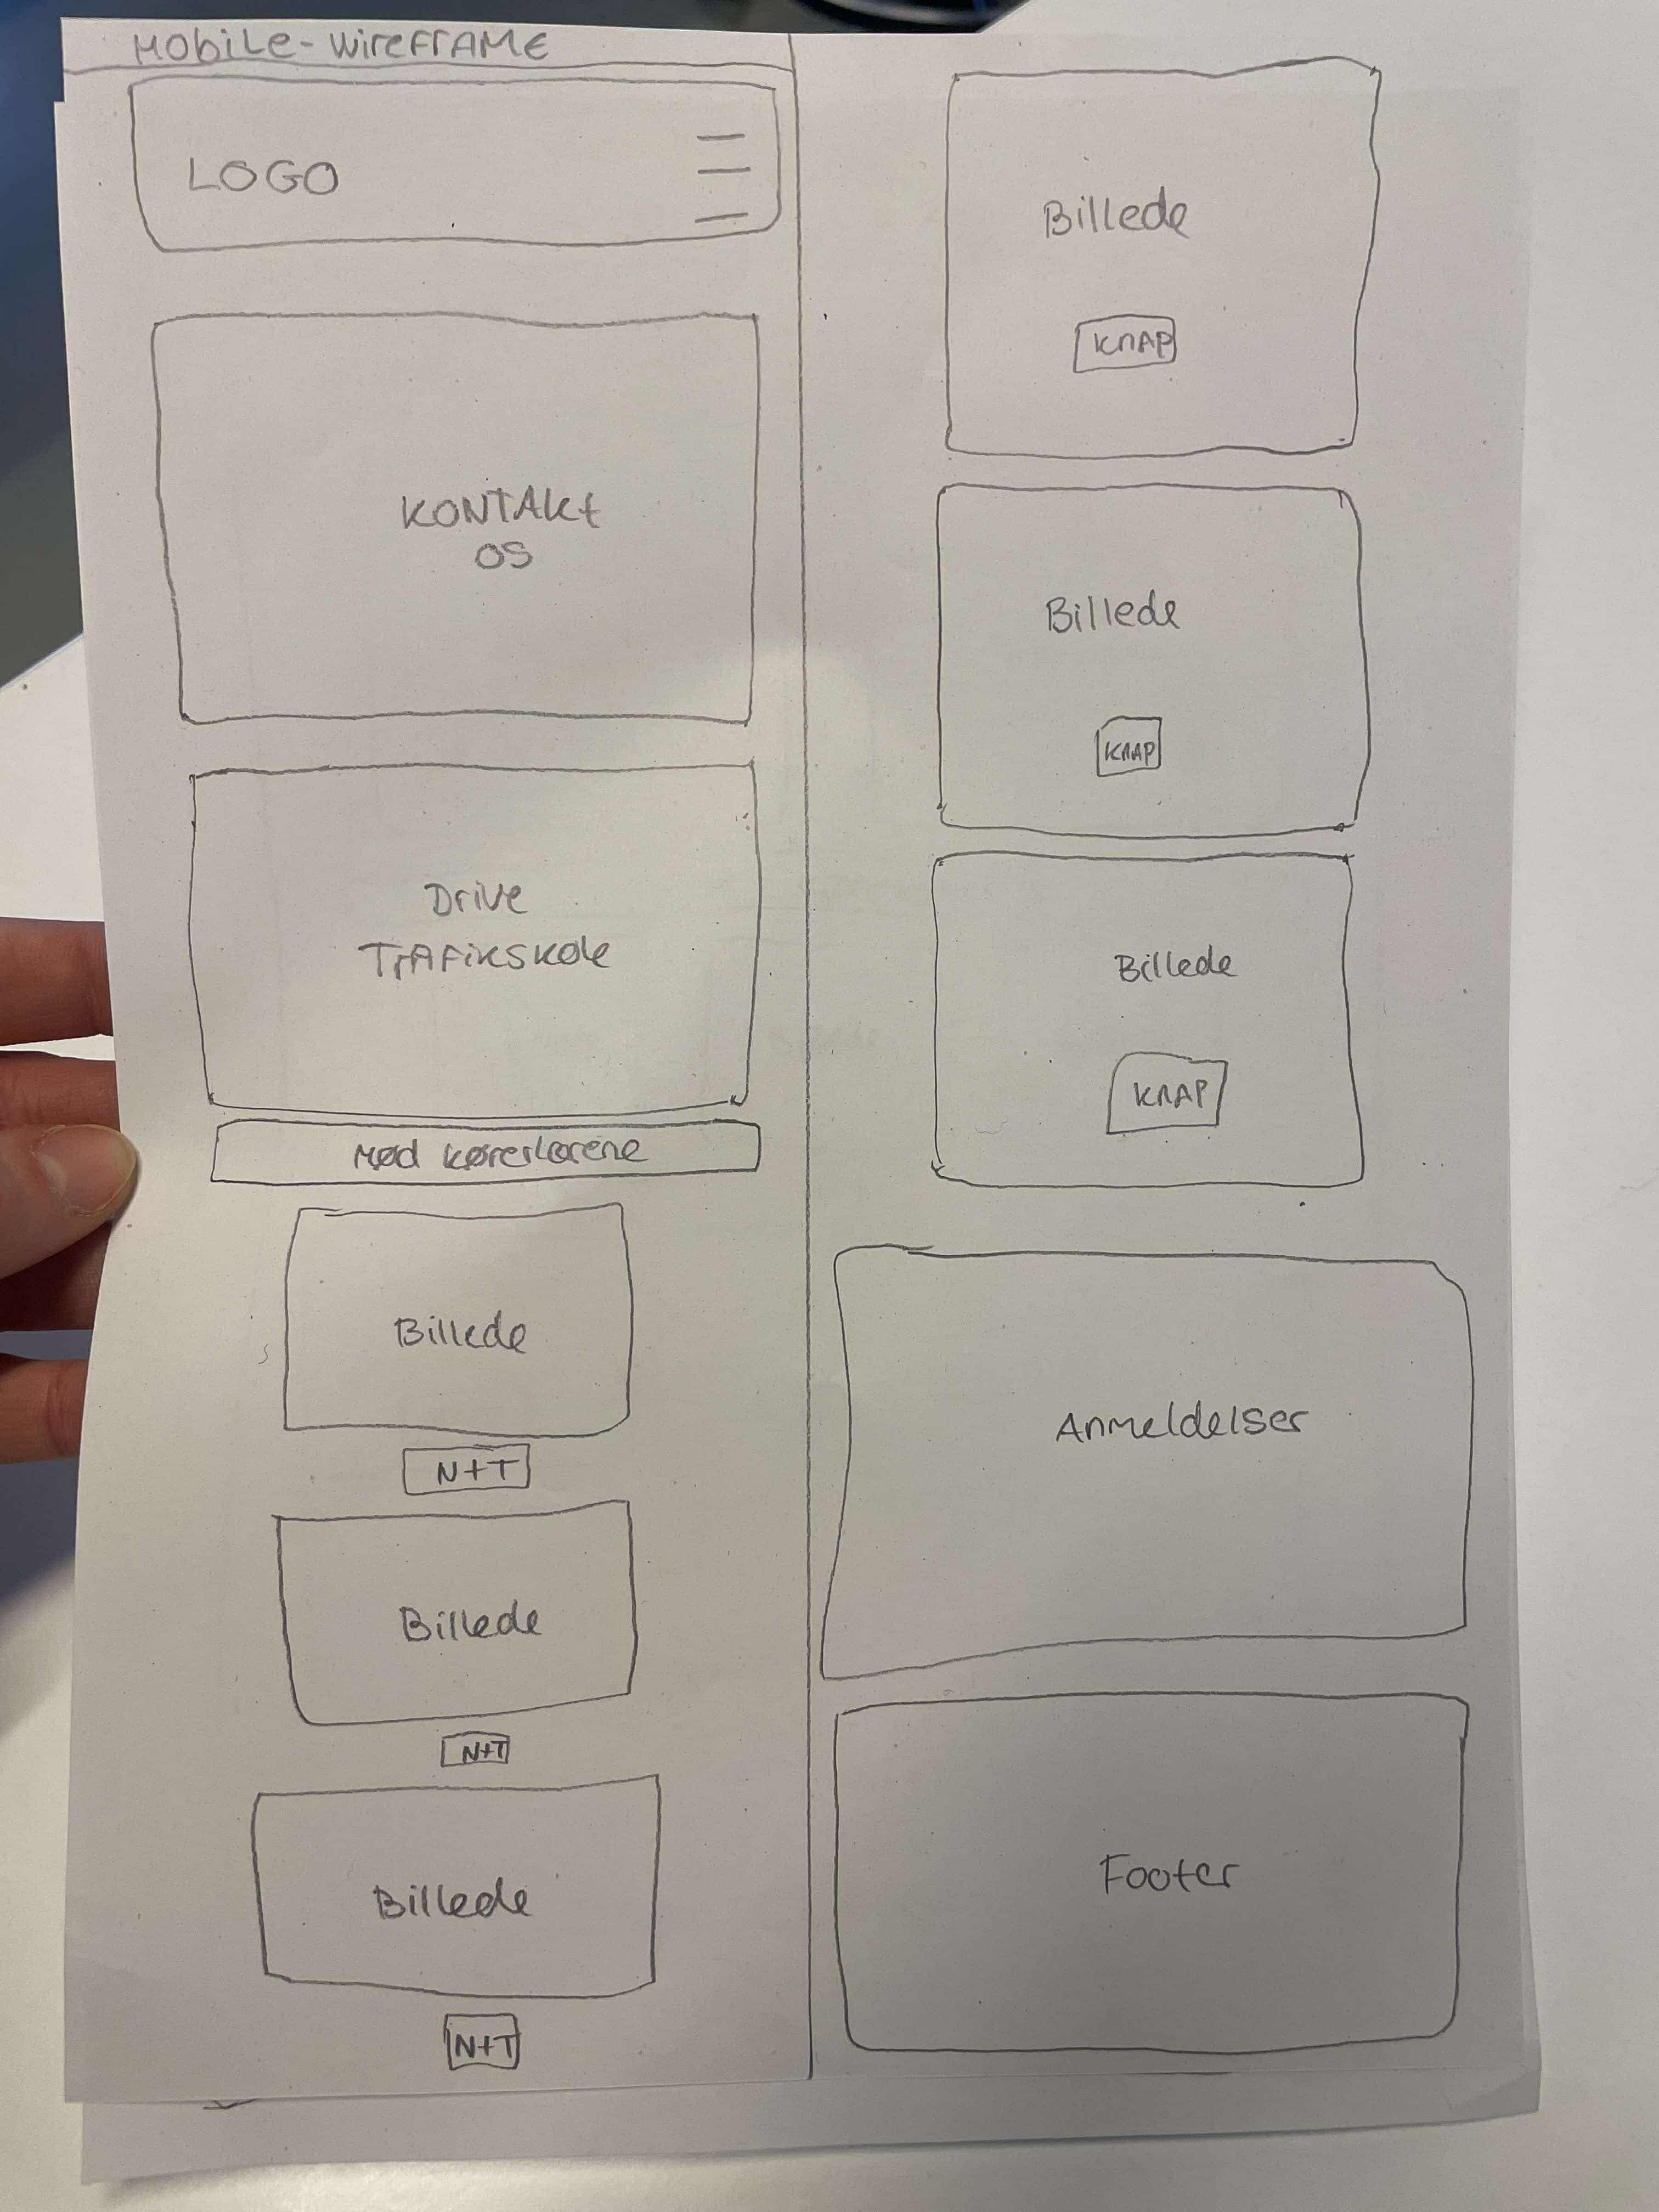 MOBILE-WIREFRAME
LOGO
KONTAKT
OS
Drive
TRAFIKSKOLE
Mød kørerlærene
Billede
N+T
Billede
N+T
Billede
N+T
Billede
KNAP
Billede
KNAP
Billede
KNAP
Anmeldelser
Footer